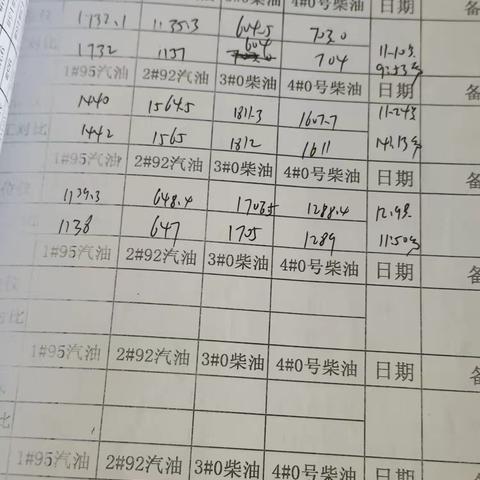 #0柴油 4#0号柴油 日期 备
1732.1 1135.3 604.5 703.0
对比 1732 1137 604 704 11-10号
1#95汽油 2#92汽油 3#0柴油 4#0号柴油 日期 备
1440 1564.5 1811.3 1607.7 11-24号
对比 1442 1565 1812 1611
1#95汽油 2#92汽油 3#0柴油 4#0号柴油 日期 备
648.4 1288.4
比 1138 647 1705 1289
1#95汽油 2#92汽油 3#0柴油 4#0号柴油 日期 备
比
1#95汽油 2#92汽油 3#0柴油 4#0号柴油 日期 备
比
1#95汽油 2#92汽油 3#0柴油 4#0号柴油 日期 备